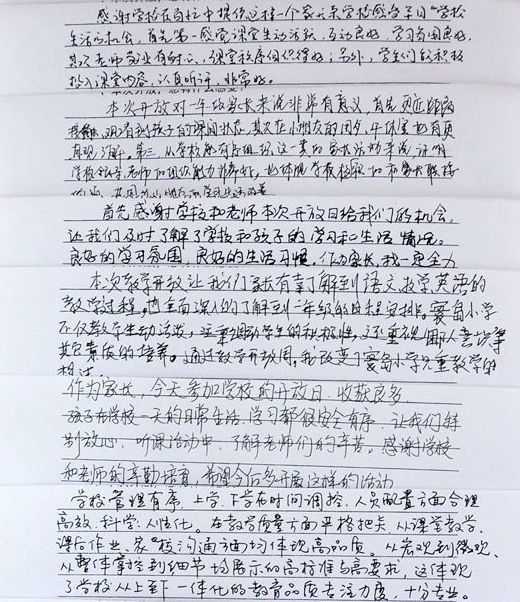 感谢学校在百忙中提供这样一个家长来学校感受子日"学校
生活的机会。首先第一感觉课堂生动活跃,互动良好,学习氛围良好,
其次老师敬业有耐心,课堂秩序组织得好;另外,学生们能积极
投入课堂内容,认真听讲,非常好。
本次开放对一年级家长来说非常有意义,首先更近距离
观看到孩子的课间状态,其次在小朋友的团夕、午休室也有更
直观了解。第三,从学校能有序组织这一类的家长活动来说,证明
学校领导、老师的组织能力非常好,也体现学校积极
首先感谢学校和老师本次开放日给我们的机会,
让我们及时了解了学校和孩子的学习和生活情况。
良好的学习氛围,良好的生活习惯,作为家长,我一定全力
本次教学开放让我们家长有幸了解到语文数学英语的
教学过程。也全面深入的了解到一年级的日程安排。寰岛小学
不仅教学生动活泼,注重调动学生的积极性,还重视个人意识等
其它素质的培养。通过教学开放周,我改变了寰岛小学只重教学的
想法。
作为家长,今天参加学校的开放日,收获良多。
孩子在学校一天的日常生活、学习都很安全有序,让我们特
别放心,听课活动中,了解老师们的辛苦。感谢学校
和老师的辛勤培育,希望今后多开展这样的活动
学校管理有序,上学、下学在时间调控、人员配置方面合理
高效、科学、人性化。在教学质量方面严格把关,从课堂教学、
课后作业、家校沟通方面均体现高品质。从宏观到微观、
从整体掌控到细节均展示的高标准与高要求,这体现
了学校从上至下一体化的教育品质专注力度,十分专业。